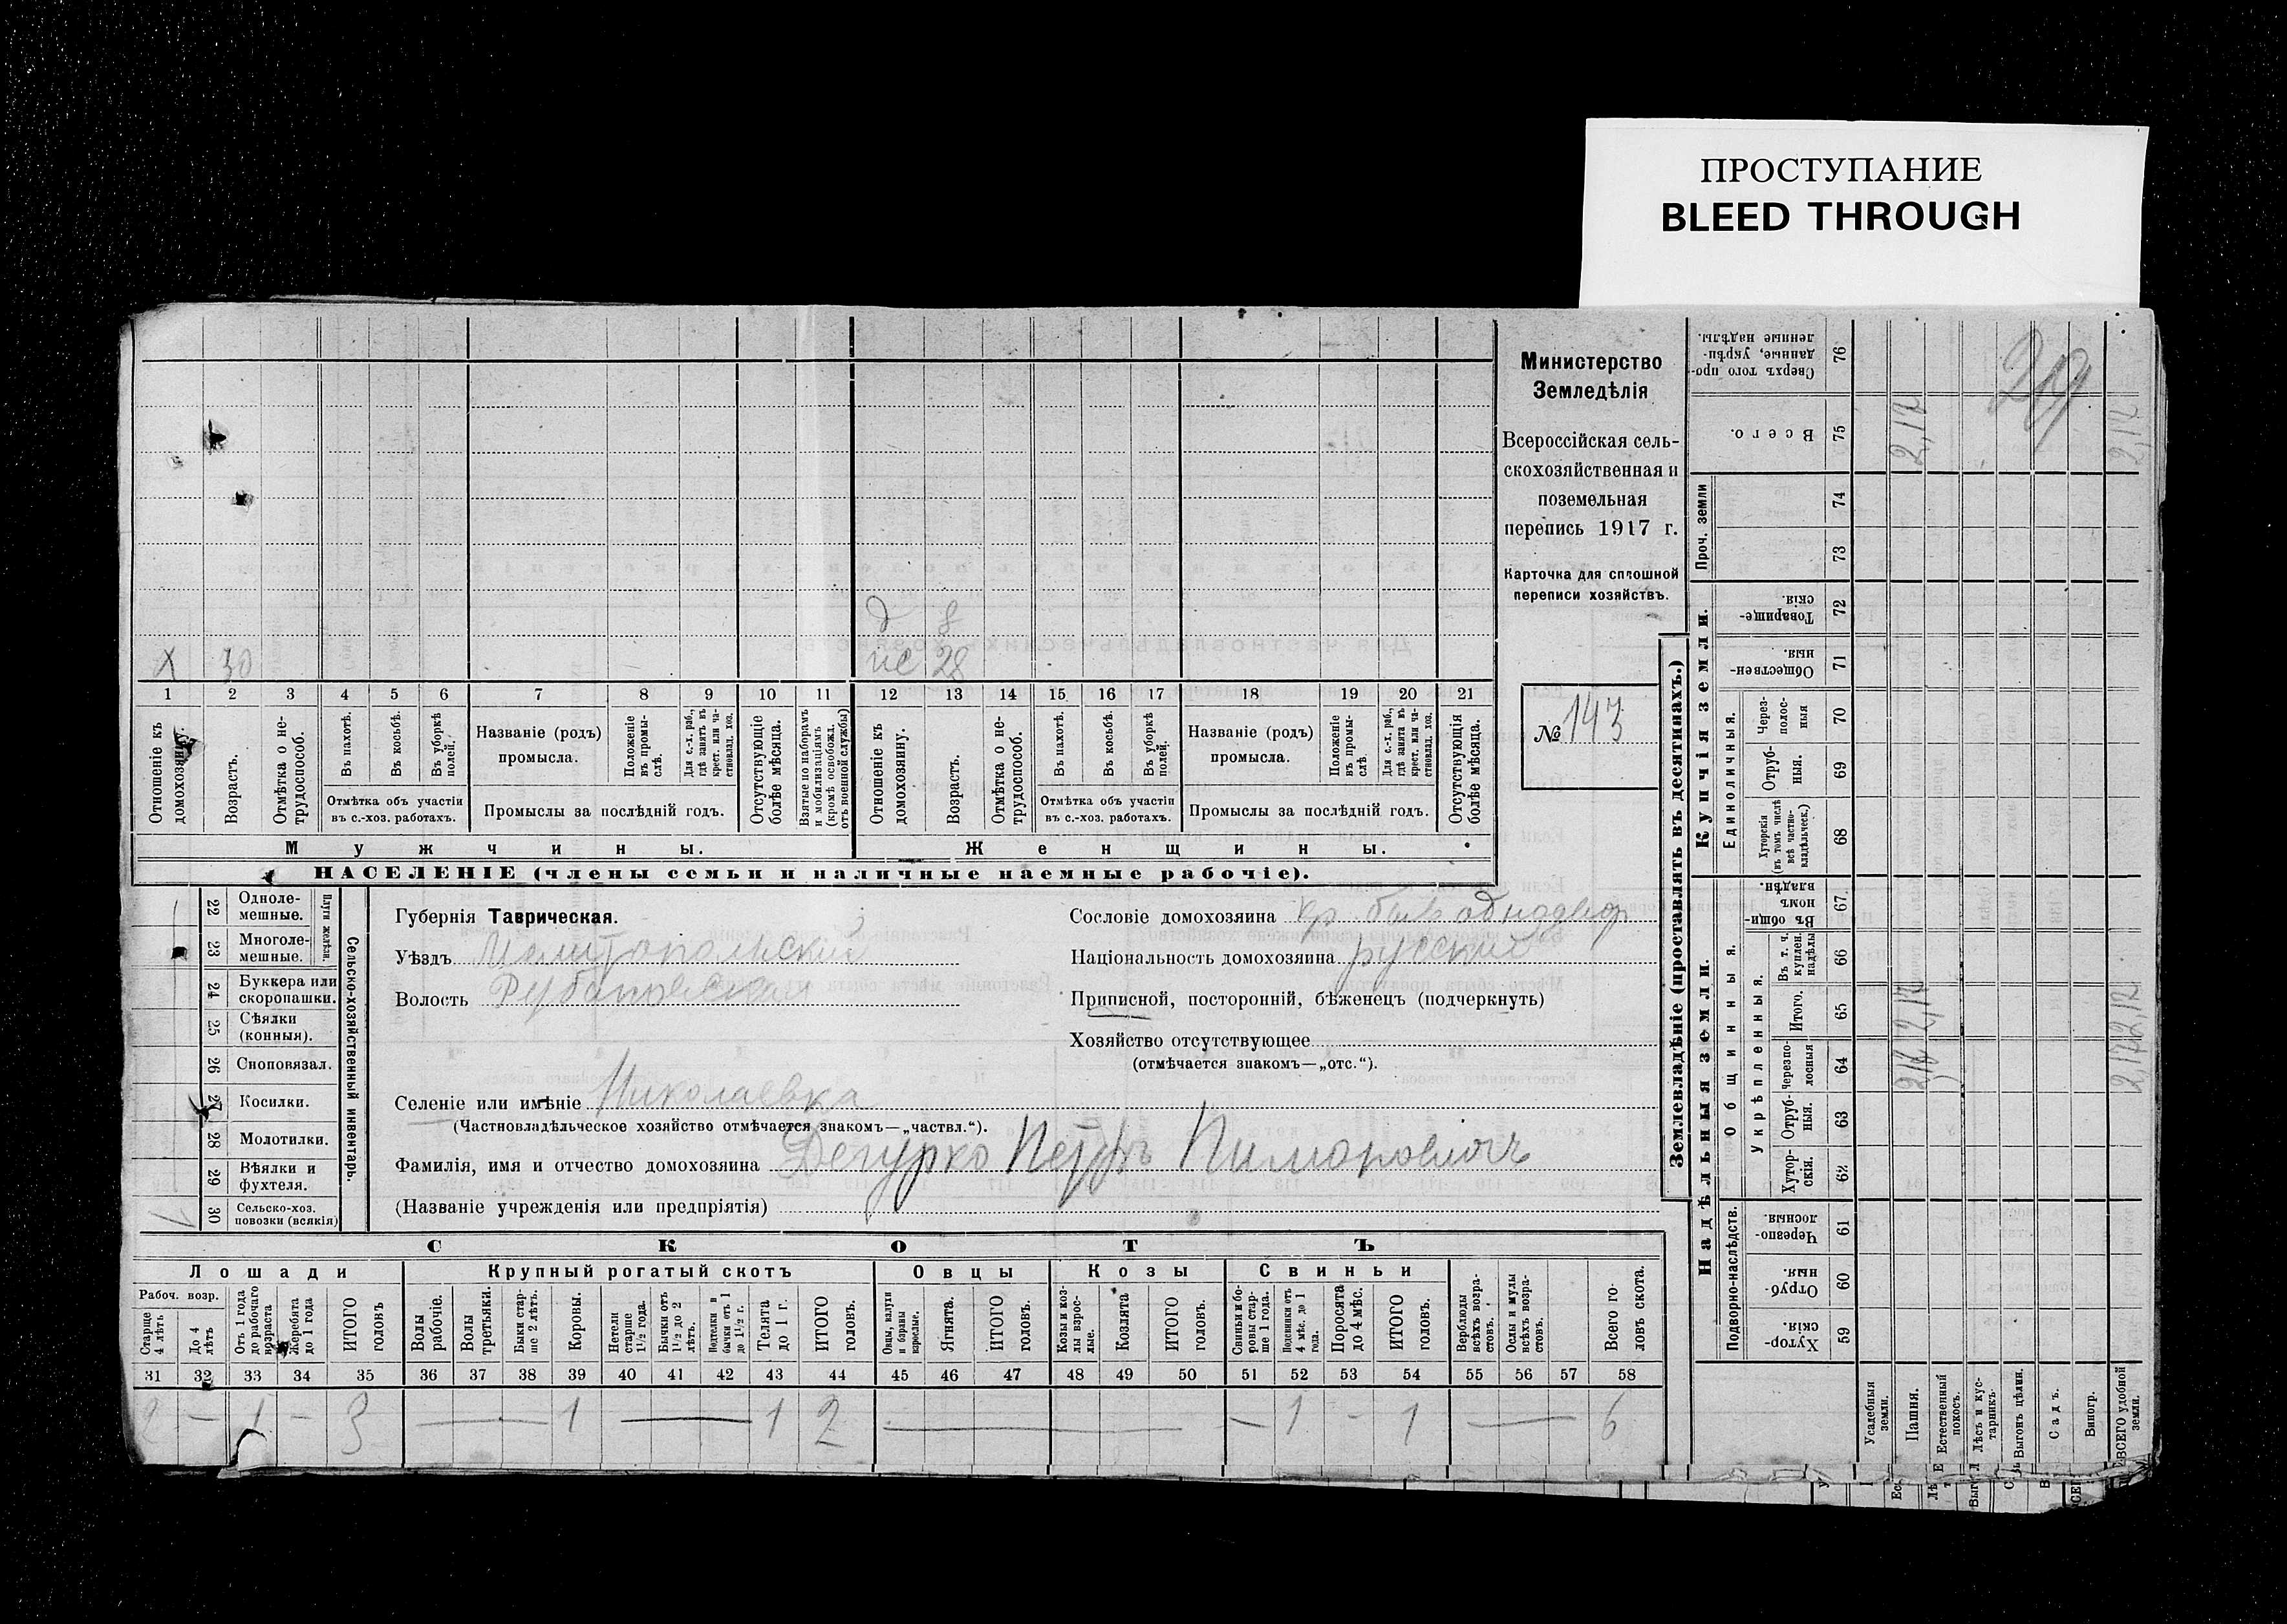 ПРОСТУПАНИЕ
BLEED THROUGH
Министерство
Земледѣлія
Всероссійская сель-
скохозяйственная и
поземельная
перепись 1917 г.
Карточка для сплошной
переписи хозяйствъ.
№ 143
д 8
х 30
же 28
1 2 3 4 5 6 7 8 9 10 11 12 13 14 15 16 17 18 19 20 21
Отношеніе къ домохозяину.
Возрастъ.
Отмѣтка о не-трудоспособ.
Въ пахотѣ.
Въ косьбѣ.
Въ уборкѣ полей.
Отмѣтка объ участіи
въ с.-хоз. работахъ.
Названіе (родъ)
промысла.
Положеніе въ промы-слѣ.
Для с.-х. раб., гдѣ занятъ въ крест. или ча-стновлад. хоз.
Промыслы за послѣдній годъ.
Отсутствующіе болѣе мѣсяца.
Взятые по наборамъ и мобилизаціямъ (кромѣ освобожд. отъ военной службы)
Отношеніе къ домохозяину.
Возрастъ.
Отмѣтка о не-трудоспособ.
Въ пахотѣ.
Въ косьбѣ.
Въ уборкѣ полей.
Отмѣтка объ участіи
въ с.-хоз. работахъ.
Названіе (родъ)
промысла.
Положеніе въ промы-слѣ.
Для с.-х. раб., гдѣ занята въ крест. или ча-стновлад. хоз.
Промыслы за послѣдній годъ.
Отсутствующія болѣе мѣсяца.
Мужчины.
Женщины.
НАСЕЛЕНІЕ (члены семьи и наличные наемные рабочіе).
Сельско-хозяйственный инвентарь.
Плуги желѣзн.
22 Одноле-мешные.
23 Многоле-мешные.
24 Буккера или скоропашки.
25 Сѣялки (конныя).
26 Сноповязал.
27 Косилки.
28 Молотилки.
29 Вѣялки и фухтеля.
30 Сельско-хоз. повозки (всякія)
Губернія Таврическая.
Уѣздъ Мелитопольский
Волость Рубановская
Селеніе или имѣніе Николаевка
(Частновладѣльческое хозяйство отмѣчается знакомъ—„частвл.“).
Фамилія, имя и отчество домохозяина Дегурко Петръ Пимоновичъ
(Названіе учрежденія или предпріятія)
Сословіе домохозяина кр. быв. однодвор
Національность домохозяина русский
Приписной, посторонній, бѣженецъ (подчеркнуть)
Хозяйство отсутствующее
(отмѣчается знакомъ—„отс.“).
СКОТЪ
Лошади
Крупный рогатый скотъ
Овцы
Козы
Свиньи
Рабоч. возр.
Старше 4 лѣтъ
До 4 лѣтъ
Отъ 1 года до рабочаго возраста
Жеребята до 1 года
ИТОГО головъ
Волы рабочіе.
Волы третьяки.
Быки стар-ше 2 лѣтъ.
Коровы.
Нетели старше 1½ года.
Бычки отъ 1½ до 2 лѣтъ.
Подтелки и бычки отъ 1 до 1½ г.
Телята до 1 г.
ИТОГО головъ.
Овцы, валухи и бараны взрослые.
Ягнята.
ИТОГО головъ.
Козы и коз-лы взрос-лые.
Козлята
ИТОГО головъ.
Свиньи и бо-ровы стар-ше 1 года.
Подсвинки отъ 4 мѣс. до 1 года.
Поросята до 4 мѣс.
ИТОГО головъ.
Верблюды всѣхъ возра-стовъ.
Ослы и мулы всѣхъ возра-стовъ.
Всего го-ловъ скота.
31 32 33 34 35 36 37 38 39 40 41 42 43 44 45 46 47 48 49 50 51 52 53 54 55 56 57 58
2 — 1 — 3 — 1 — 1 2 — — 1 - 1 — 6
Землевладѣніе (проставлять въ десятинахъ.)
Надѣльныя земли.
Купчія земли.
Проч. земли
Подворно-наслѣдств.
Общинныя.
Укрѣпленныя.
Единоличныя.
Сверхъ того про-данные, укрѣп-ленные надѣлы. 76
Всего. 75
74
73
Товарище-скія. 72
Обществен-ныя. 71
Через-полос-ныя 70
Отруб-ныя. 69
Хуторскія (въ томъ числѣ всѣ частно-владѣльческ.) 68
Въ общин-номъ владѣн. 67
Въ т. ч. куплен. надѣлы 66
Итого. 65
Черезпо-лосныя 64
Отруб-ныя. 63
Хутор-скія. 62
Черезпо-лосныя. 61
Отруб-ныя. 60
Хутор-скія. 59
Усадебныя земли.
Пашня.
Естественный покосъ.
Лѣсъ и кус-тарникъ.
Выгонъ цѣлин.
Садъ.
Виногр.
ВСЕГО удобной земли.
2,12
2,12
2,12